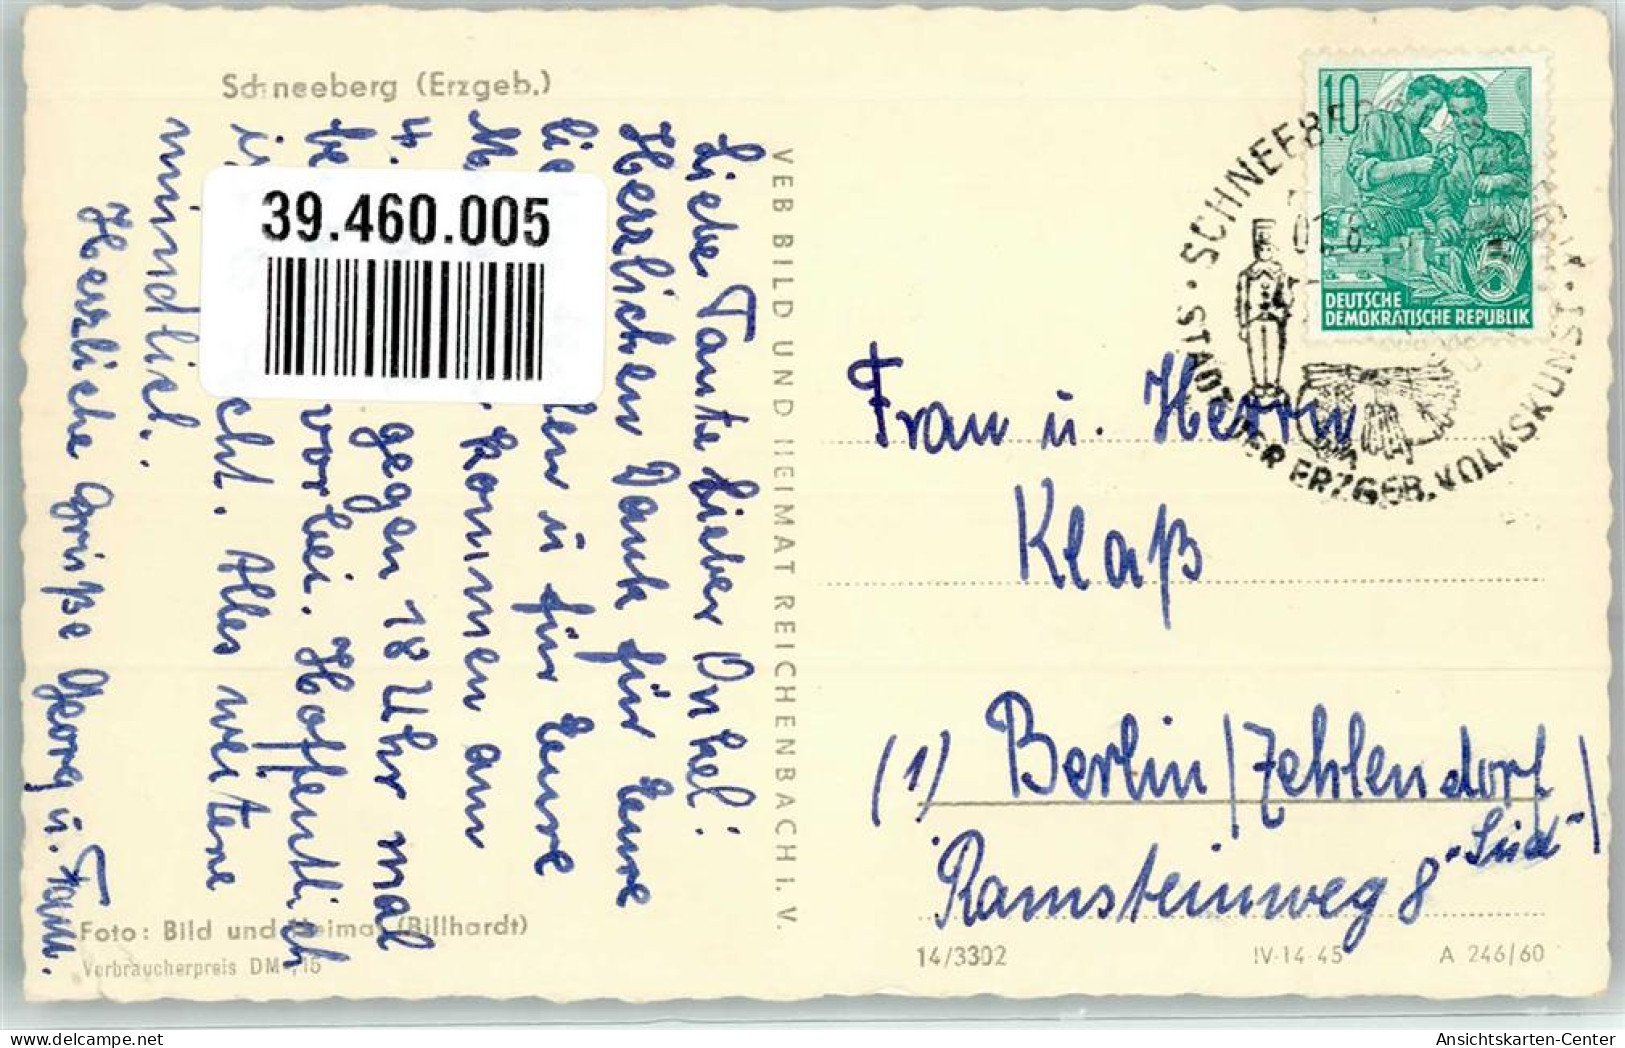 Schneeberg (Erzgeb.)
Liebe Tante Lieber Onkel!
Herzlichen Dank für Eure
lie en u für Eure
kommen am
4. gegen 18 Uhr mal
vorbei. Hoffentlich
cht. Alles weitere
mündlich.
Herzliche Grüße Georg u. Fam.
39.460.005
Foto: Bild und Heimat (Billhardt)
Verbraucherpreis DM -,15
VEB BILD UND HEIMAT REICHENBACH I. V.
10
DEUTSCHE
DEMOKRATISCHE REPUBLIK
5
SCHNEEBERG
STADT DER ERZGEB. VOLKSKUNST
Frau u. Herrn
Klaß
(1) Berlin/Zehlendorf
"Süd"/
Ramsteinweg 8
14/3302
IV-14-45
A 246/60
Ansichtskarten-Center
www.delcampe.net